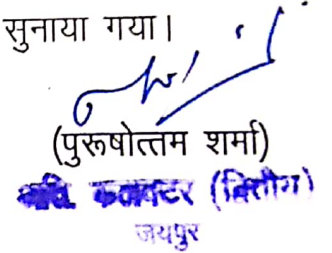 सुनाया गया।
(पुरूषोत्तम शर्मा)
अति. कलक्टर (द्वितीय)
जयपुर